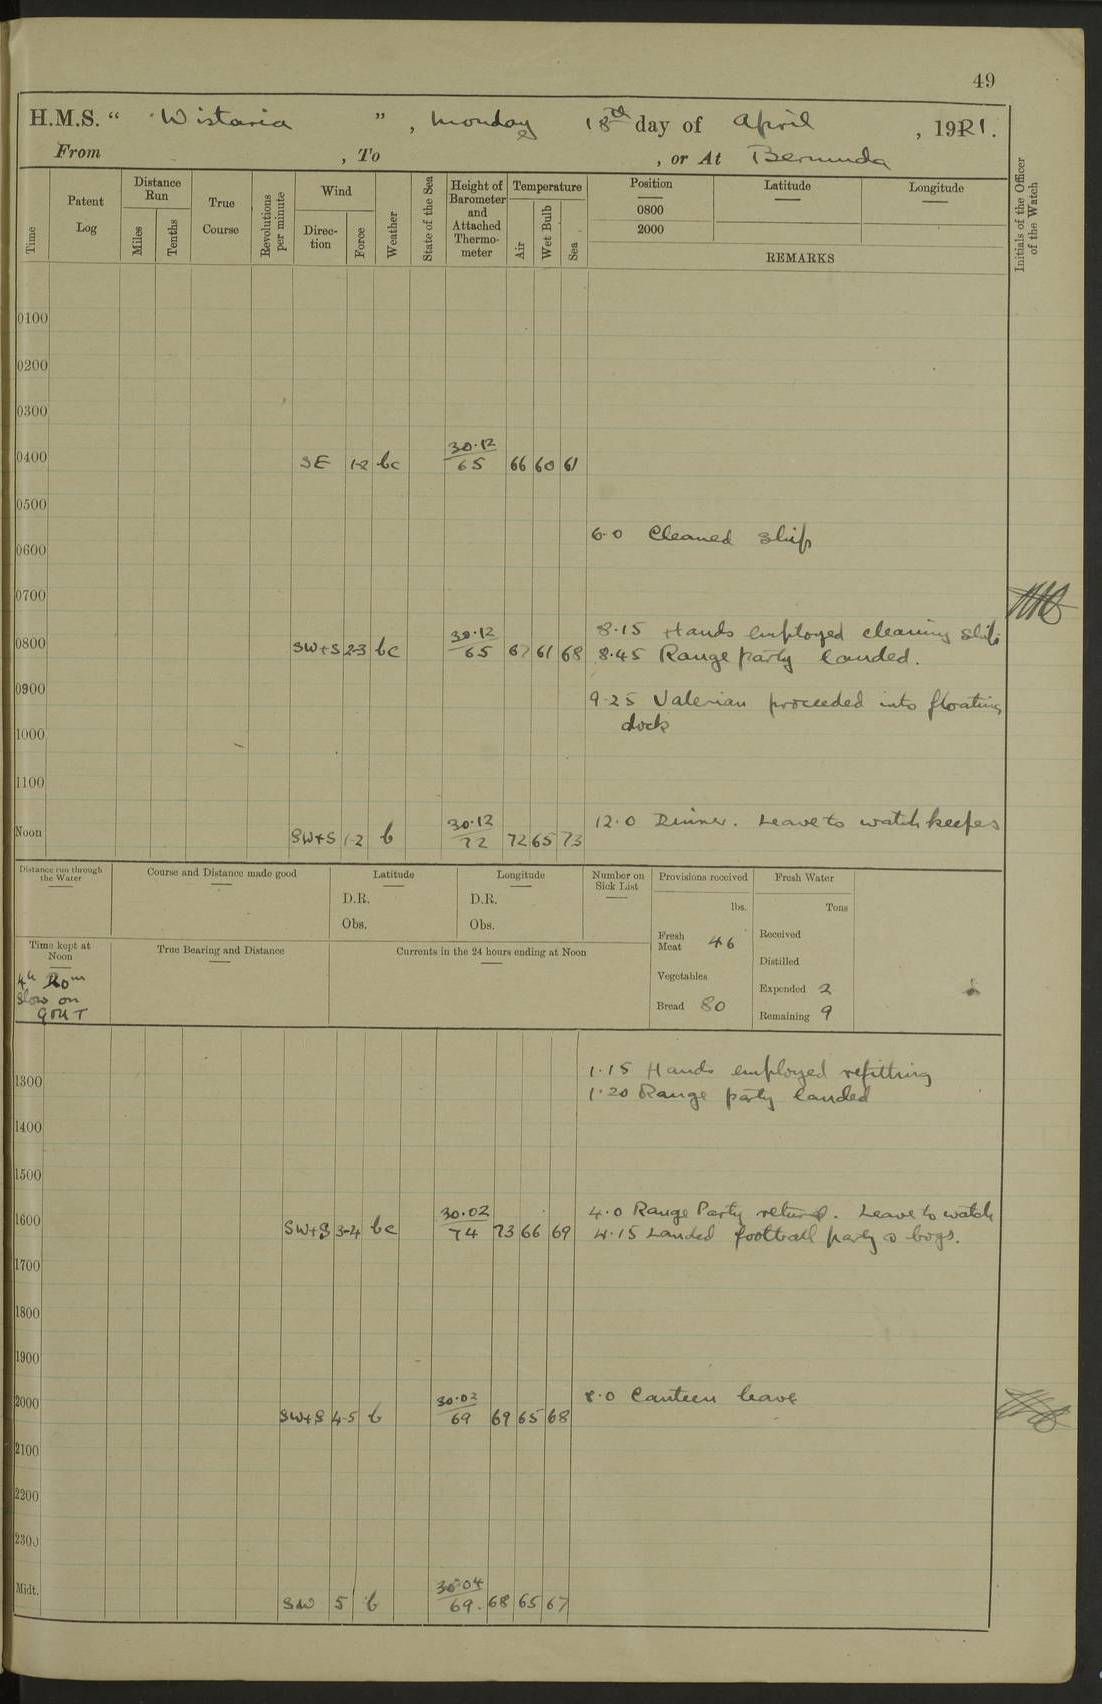 49
H.M.S. " Wistaria ", Monday 18th day of April, 1921.
From , To , or At Bermuda
Time
Patent Log
Distance Run
Miles
Tenths
True Course
Revolutions per minute
Wind
Direc-tion
Force
Weather
State of the Sea
Height of Barometer and Attached Thermo-meter
Temperature
Air
Wet Bulb
Sea
Position
0800
2000
Latitude
Longitude
REMARKS
Initials of the Officer of the Watch
0100
0200
0300
0400 SE 1-2 bc 30.12/65 66 60 61
0500
6.0 Cleaned ship
0600
0700
8.15 Hands employed cleaning ship
0800 SW+S 2-3 bc 30.12/65 67 61 68 8.45 Range party landed.
0900 9.25 Valerian proceeded into floating
dock
1000
1100
12.0 Dinner. Leave to watch keepes
Noon SW+S 1-2 b 30.12/72 72 65 73
Distance run through the Water
Course and Distance made good
Latitude
D.R.
Obs.
Longitude
D.R.
Obs.
Number on Sick List
Provisions received
lbs.
Fresh Meat 46
Vegetables
Bread 80
Fresh Water
Tons
Received
Distilled
Expended 2
Remaining 9
Time kept at Noon
4h 20m
Slow on
GMT
True Bearing and Distance
Currents in the 24 hours ending at Noon
1.15 Hands employed refitting
1300
1.20 Range party landed
1400
1500
4.0 Range Party returned. Leave to watch
1600 SW+S 3-4 bc 30.02/74 73 66 69 4.15 Landed football party & boys.
1700
1800
1900
8.0 Canteen leave
2000 SW+S 4-5 b 30.02/69 69 65 68
2100
2200
2300
Midt. SW 5 b 30.04/69. 68 65 67